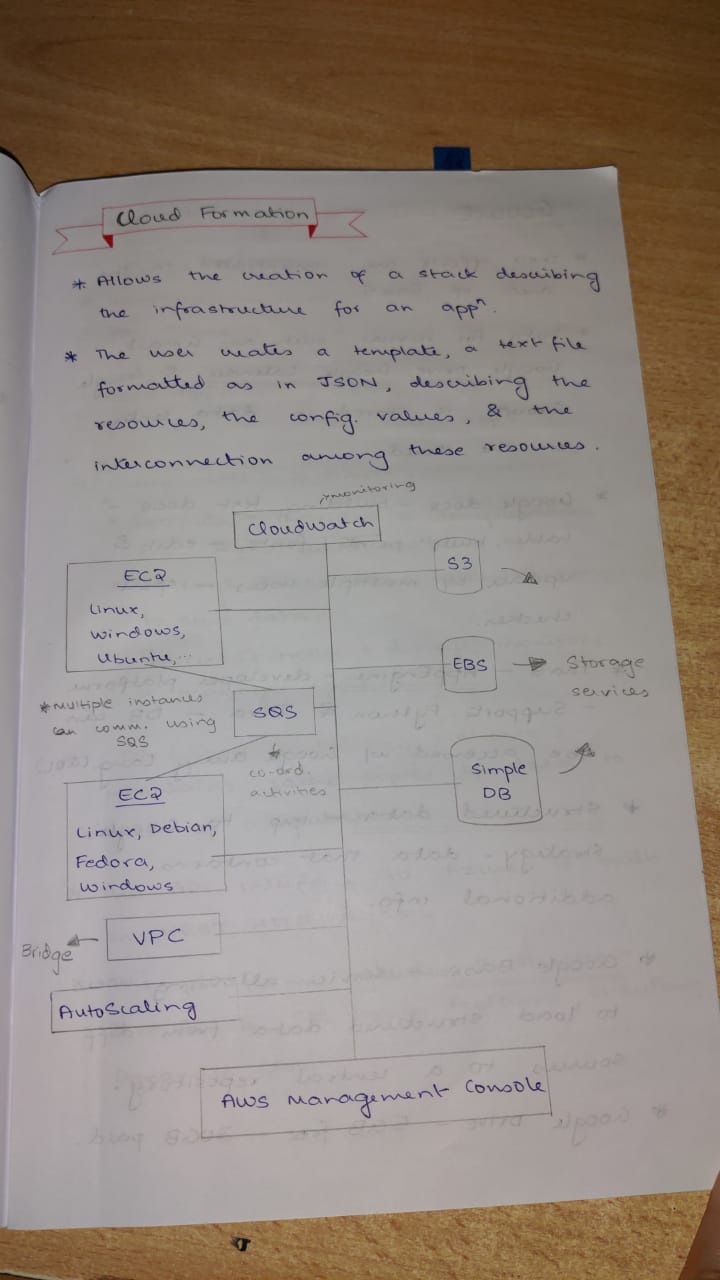 Cloud Formation
* Allows the creation of a stack describing
the infrastructure for an appⁿ.
* The user creates a template, a text file
formatted as in JSON, describing the
resources, the config. values, & the
interconnection among these resources.
monitoring
Cloudwatch
EC2
Linux,
windows,
Ubuntu,...
S3
EBS
Storage
services
* Multiple instances
can comm. using
SQS
SQS
co-ord.
activities
Simple
DB
EC2
Linux, Debian,
Fedora,
windows
VPC
Bridge
AutoScaling
AWS Management Console